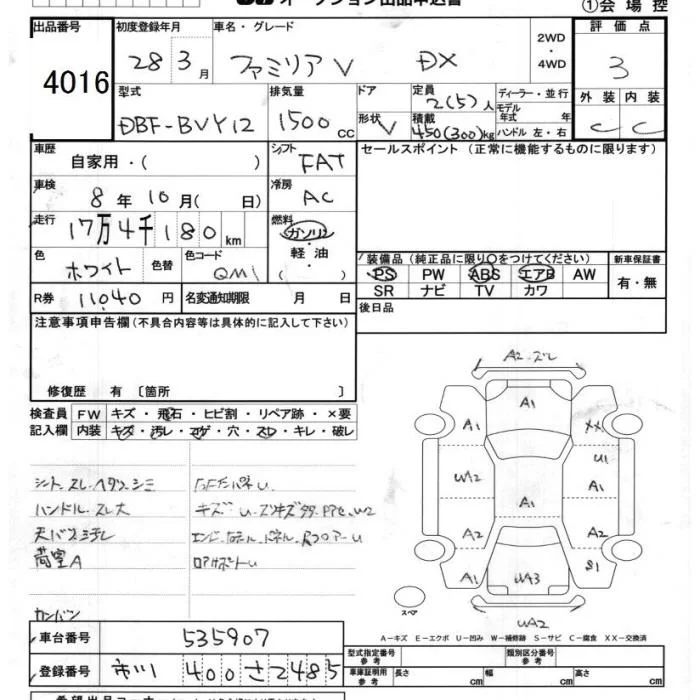 ①会場控
出品番号
4016
初度登録年月
28年3月
車名・グレード
ファミリア V DX
2WD
・
4WD
評価点
3
型式
DBF-BVY12
排気量
1500 cc
ドア
形状 V
定員
2(5)人
積載
450(300)kg
ディーラー・並行
モデル年式 年
ハンドル 左・右
外装 内装
C C
車歴
自家用・( )
シフト
FAT
セールスポイント(正常に機能するものに限ります)
車検
8年10月( 日)
冷房
AC
走行
17万4千180km
燃料
ガソリン
・
軽油
・
( )
色
ホワイト
色替
色コード
QM1
装備品(純正品に限り○をつけてください)
PS PW ABS エアB AW
SR ナビ TV カワ
新車保証書
有・無
R券 11040円
名変通知期限 月 日
後日品
注意事項申告欄(不具合内容等は具体的に記入して下さい)
修復歴 有〔箇所 〕
検査員 FW キズ・飛石・ヒビ割・リペア跡・×要
記入欄 内装 キズ・汚レ・コゲ・穴・スレ・キレ・破レ
シート スレ ヘタリ シミ
ハンドル スレ 大
荷室A
A2・ズレ
A1
A1
XX
U1
UA2
A1
A1
A2
A2
A1
UA3
S1
スペア
UA2
A-キズ E-エクボ U-凹み W-補修跡 S-サビ C-腐食 XX-交換済
車台番号 535907
登録番号 市川 400 さ 2485
型式指定番号
参考
類別区分番号
参考
車庫証明用
参考
長さ cm 幅 cm 高さ cm